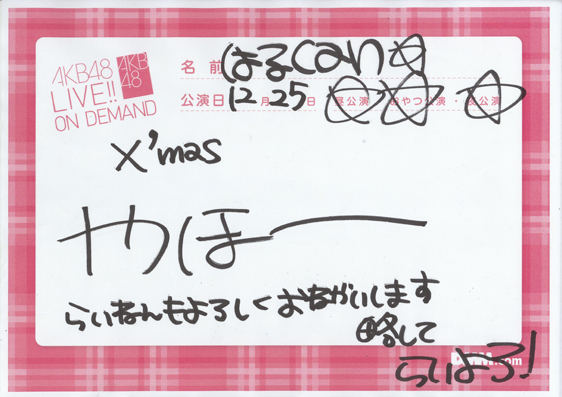 AKB48
LIVE!!
ON DEMAND
AKB
48
名前 はるcan☆
公演日 12月25日 昼公演・おやつ公演・夜公演
X'mas
やほー
らいねんもよろしくおねがいします
略して
らいよろ!
.com